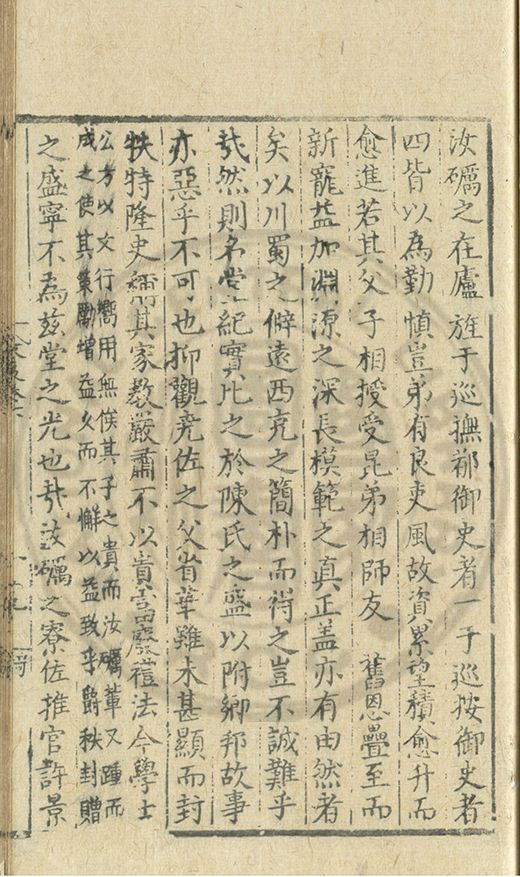 汝礪之在廬旌于巡撫鄒御史者一于巡按御史者
四皆以為勤慎豈弟有良吏風故資累望積愈升而
愈進若其父子相授受昆弟相師友舊恩疊至而
新寵益加淵源之深長模範之真正盖亦有由然者
矣以川蜀之僻遠西充之簡朴而得之豈不誠難乎
㢤然則名堂紀實比之於陳氏之盛以附鄉邦故事
亦惡乎不可也抑觀堯佐之父省華雖未甚顯而封
秩特隆史稱其家教嚴肅不以貴富廢禮法今學士
公方以文行嚮用無俟其子之貴而汝礪軰又踵而
成之使其策勵增益久而不懈以益致乎爵秩封贈
之盛寧不為兹堂之光也㢤汝礪之寮佐推官許景